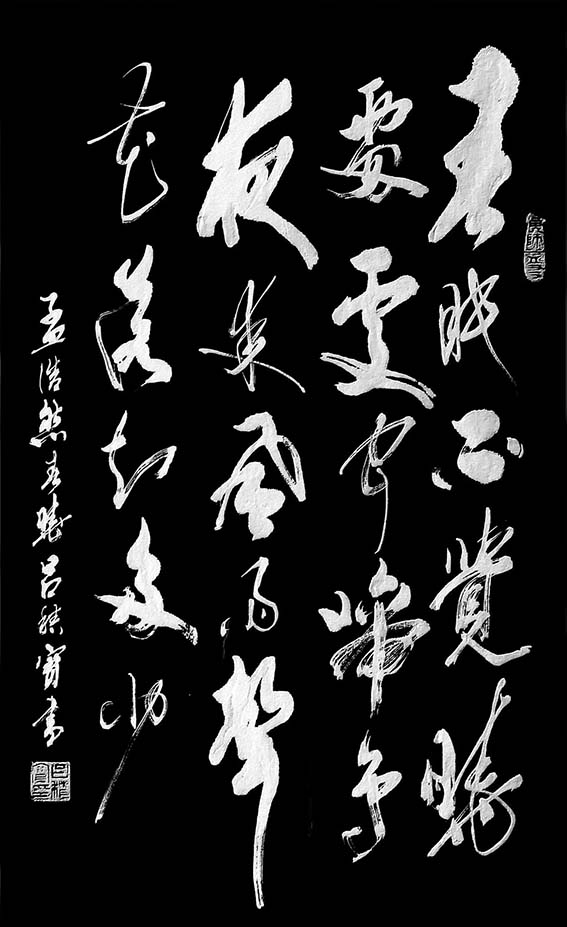 春眠不覺曉
處處聞啼鳥
夜來風雨聲
花落知多少
孟浩然春曉呂寶書